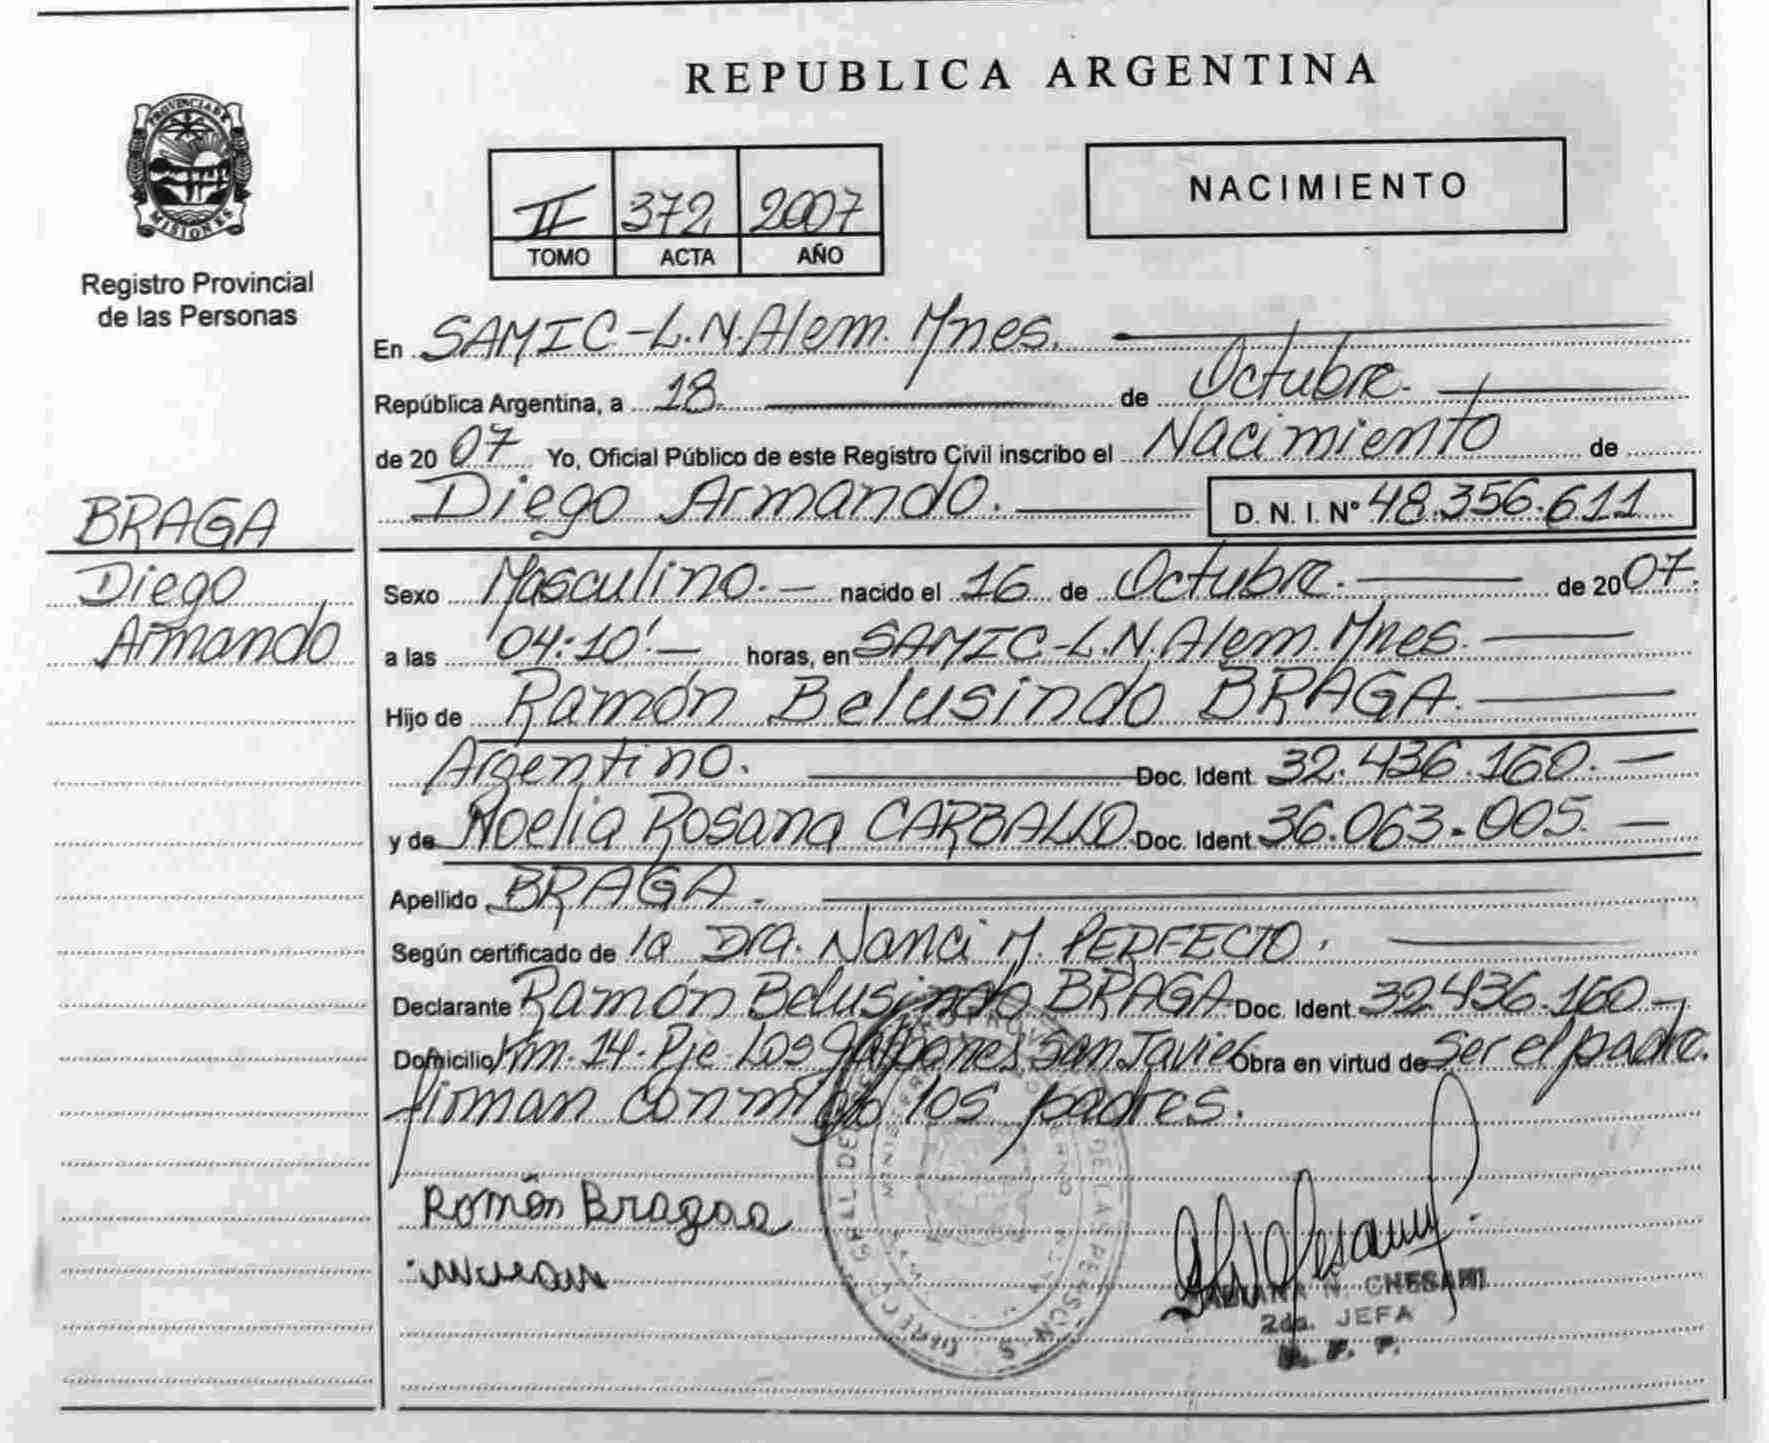 REPUBLICA ARGENTINA
PROVINCIA DE
MISIONES
Registro Provincial
de las Personas
II 372 2007
TOMO ACTA AÑO
NACIMIENTO
En SAMIC-L.N.Alem. Mnes.
República Argentina, a 18. de Octubre.
de 2007 Yo, Oficial Público de este Registro Civil inscribo el Nacimiento de
Diego Armando. D. N. I. Nº 48.356.611
BRAGA
Diego
Armando
Sexo Masculino.- nacido el 16 de Octubre. de 2007.
a las 04:10'.- horas, en SAMIC-L.N.Alem. Mnes.
Hijo de Ramón Belusindo BRAGA.
Argentino. Doc. Ident. 32.436.160.-
y de Noelia Rosana CARBALLO Doc. Ident. 36.063.005. -
Apellido BRAGA.
Según certificado de la Dra. Nanci M. PERFECTO.
Declarante Ramón Belusindo BRAGA Doc. Ident. 32.436.160-
Domicilio Km. 14-Pje-Los Galpones San Javier Obra en virtud de Ser el padre.
firman conmigo los padres.
Román Bragaa
N. CHESANI
2da. JEFA